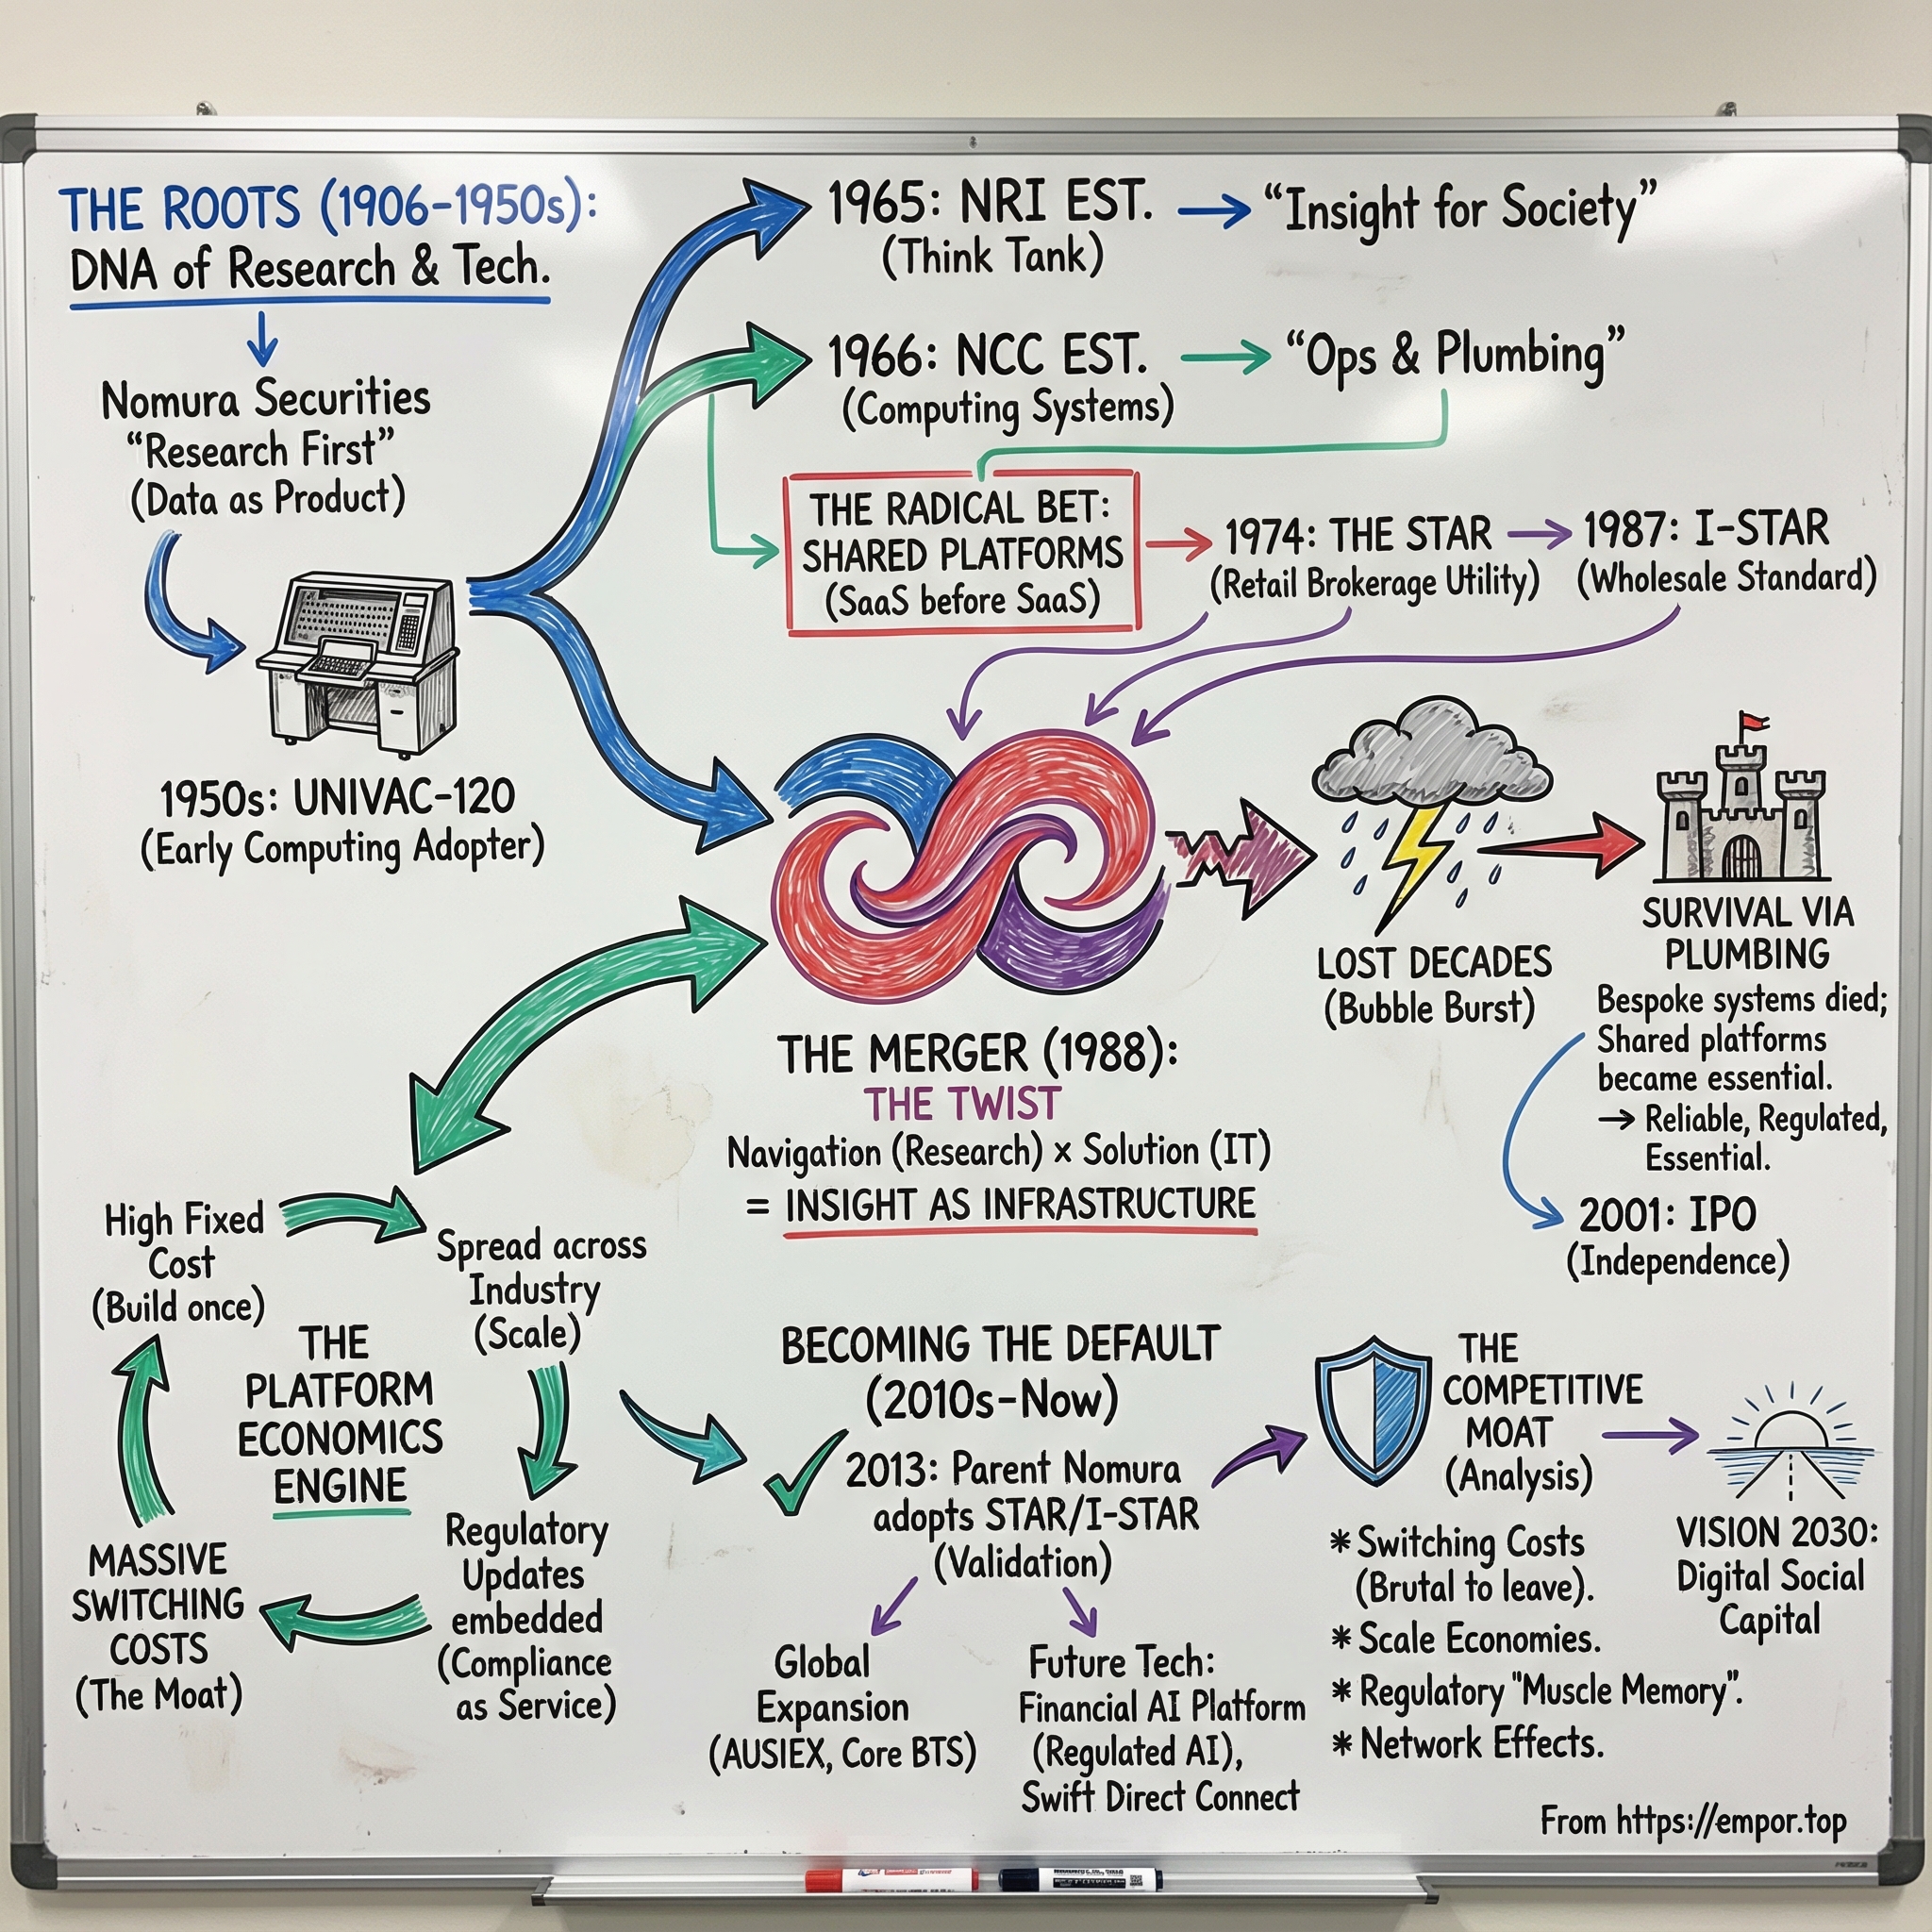 THE ROOTS (1906-1950s):
DNA of Research & Tech.
Nomura Securities
“Research First”
(Data as Product)
1950s: UNIVAC-120
(Early Computing Adopter)
1965: NRI EST.
(Think Tank)
“Insight for Society”
1966: NCC EST.
(Computing Systems)
“Ops & Plumbing”
THE RADICAL BET:
SHARED PLATFORMS
(SaaS before SaaS)
1974: THE STAR
(Retail Brokerage Utility)
1987: I-STAR
(Wholesale Standard)
THE MERGER (1988):
THE TWIST
Navigation (Research) × Solution (IT)
= INSIGHT AS INFRASTRUCTURE
LOST DECADES
(Bubble Burst)
SURVIVAL VIA
PLUMBING
Bespoke systems died;
Shared platforms
became essential.
→ Reliable, Regulated,
Essential.
2001: IPO
(Independence)
THE
PLATFORM
ECONOMICS
ENGINE
High Fixed
Cost
(Build once)
Spread across
Industry
(Scale)
Regulatory
Updates
embedded
(Compliance
as Service)
MASSIVE
SWITCHING
COSTS
(The Moat)
BECOMING THE DEFAULT
(2010s-Now)
2013: Parent Nomura
adopts STAR/I-STAR
(Validation)
Global
Expansion
(AUSIEX, Core BTS)
Future Tech:
Financial AI Platform
(Regulated AI),
Swift Direct Connect
THE
COMPETITIVE
MOAT
(Analysis)
* Switching Costs
(Brutal to leave).
* Scale Economies.
* Regulatory "Muscle Memory".
* Network Effects.
VISION 2030:
Digital Social
Capital
From https://empor.top